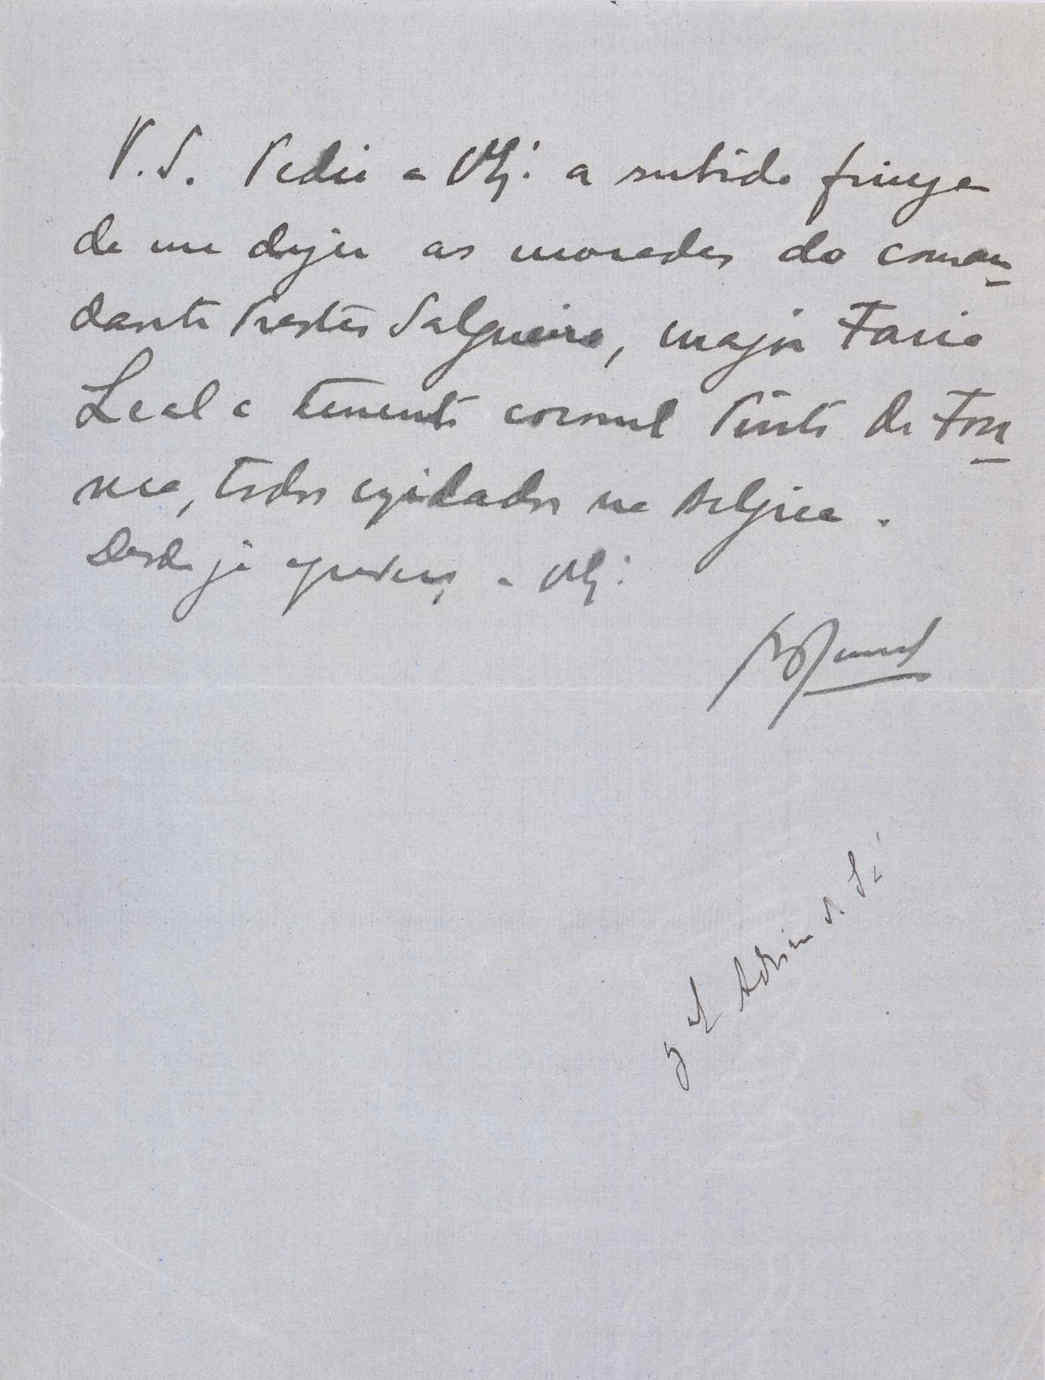 P.S. Pedia a V. Ex.ª a subida fineza
de me dizer as moradas do coman-
dante Prestes Salgueiro, major Faria
Leal e tenente coronel Pinto da Fon-
seca, todos exilados na Belgica.
Desde já agradeço a V. Ex.ª
de Sá